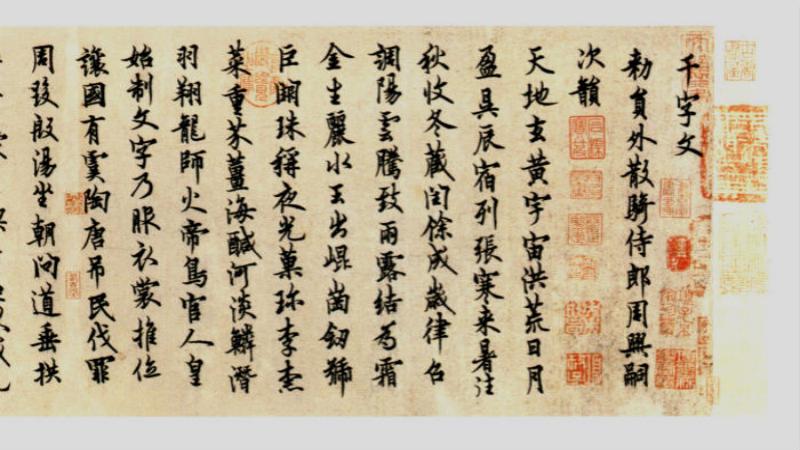 千字文
勅員外散騎侍郎周興嗣
次韻
天地玄黃宇宙洪荒日月
盈昃辰宿列張寒来暑往
秋收冬藏閏餘成歲律召
調陽雲騰致雨露結為霜
金生麗水玉出崐崗劒號
巨闕珠稱夜光菓珍李柰
菜重芥薑海醎河淡鱗潛
羽翔龍師火帝鳥官人皇
始制文字乃服衣裳推位
讓國有虞陶唐吊民伐罪
周發殷湯坐朝問道垂拱